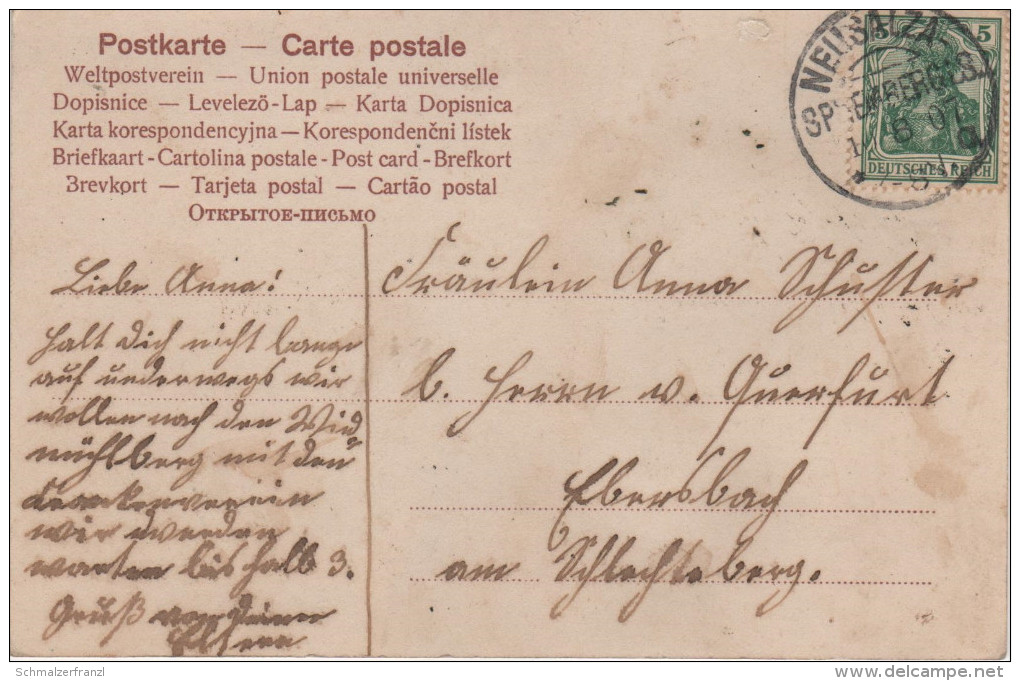 Postkarte — Carte postale
Weltpostverein — Union postale universelle
Dopisnice — Levelezö-Lap — Karta Dopisnica
Karta korespondencyjna — Korespondenčni lístek
Briefkaart - Cartolina postale - Post card - Brefkort
Brevkort — Tarjeta postal — Cartão postal
Открытое-письмо
NEUSALZA
SPREMBERG
6 07
5
DEUTSCHES REICH
Liebe Anna!
halt Dich nicht lange
auf underwegs wir
wollen nach den Wind
mühlberg mit den
Krankenverein
wir werden
warten bis halb 3.
Gruß von deinen
Eltern
Fräulein Anna Schuster
b. Herrn v. Querfurt
Ebersbach
am Schlechteberg.
Schmalzerfranzl
www.delcampe.net